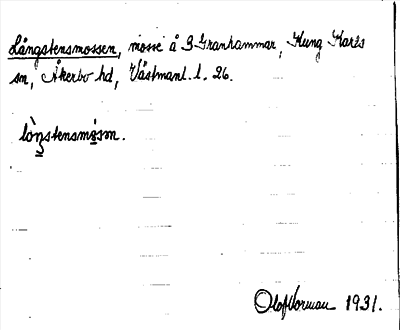 Långstensmossen, mosse å S Granhammar, Kung Karls
sn, Åkerbo hd, Västmanl. l. 26.
lòŋstensmósәn.
Olof Norman 1931.